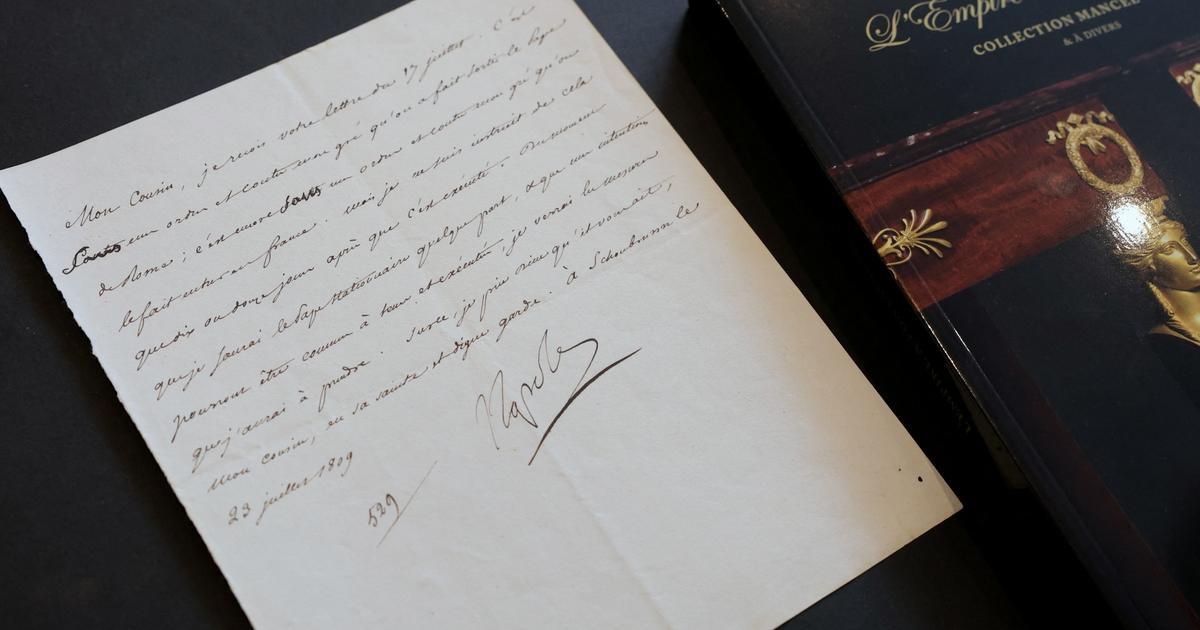 Mon Cousin, je reçois votre lettre du 17 juillet. C'est
sans mon ordre et contre mon gré qu'on a fait sortir le Pape
de Rome ; c'est encore sans mon ordre et contre mon gré qu'on
le fait entrer en france. Mais je ne suis instruit de cela
que dix ou douze jours après que c'est exécuté. Du moment
que je saurai le Pape stationnaire quelque part, & que mes intentions
pourront être connues à tems et exécutées, je verrai les mesures
que j'aurai à prendre. Sur ce, je prie Dieu qu'il vous ait,
mon cousin, en sa sainte et digne garde. à Schoenbrunn le
23 juillet 1809
529
L'Empire
COLLECTION MANCEL
& À DIVERS